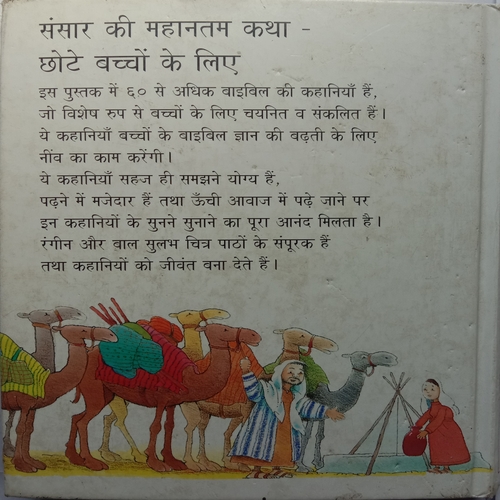 संसार की महानतम कथा -
छोटे बच्चों के लिए
इस पुस्तक में ६० से अधिक बाइबिल की कहानियाँ हैं,
जो विशेष रुप से बच्चों के लिए चयनित व संकलित हैं।
ये कहानियाँ बच्चों के बाइबिल ज्ञान की बढ़ती के लिए
नींव का काम करेंगी।
ये कहानियाँ सहज ही समझने योग्य हैं,
पढ़ने में मजेदार हैं तथा ऊँची आवाज में पढ़े जाने पर
इन कहानियों के सुनने सुनाने का पूरा आनंद मिलता है।
रंगीन और बाल सुलभ चित्र पाठों के संपूरक हैं
तथा कहानियों को जीवंत बना देते हैं।